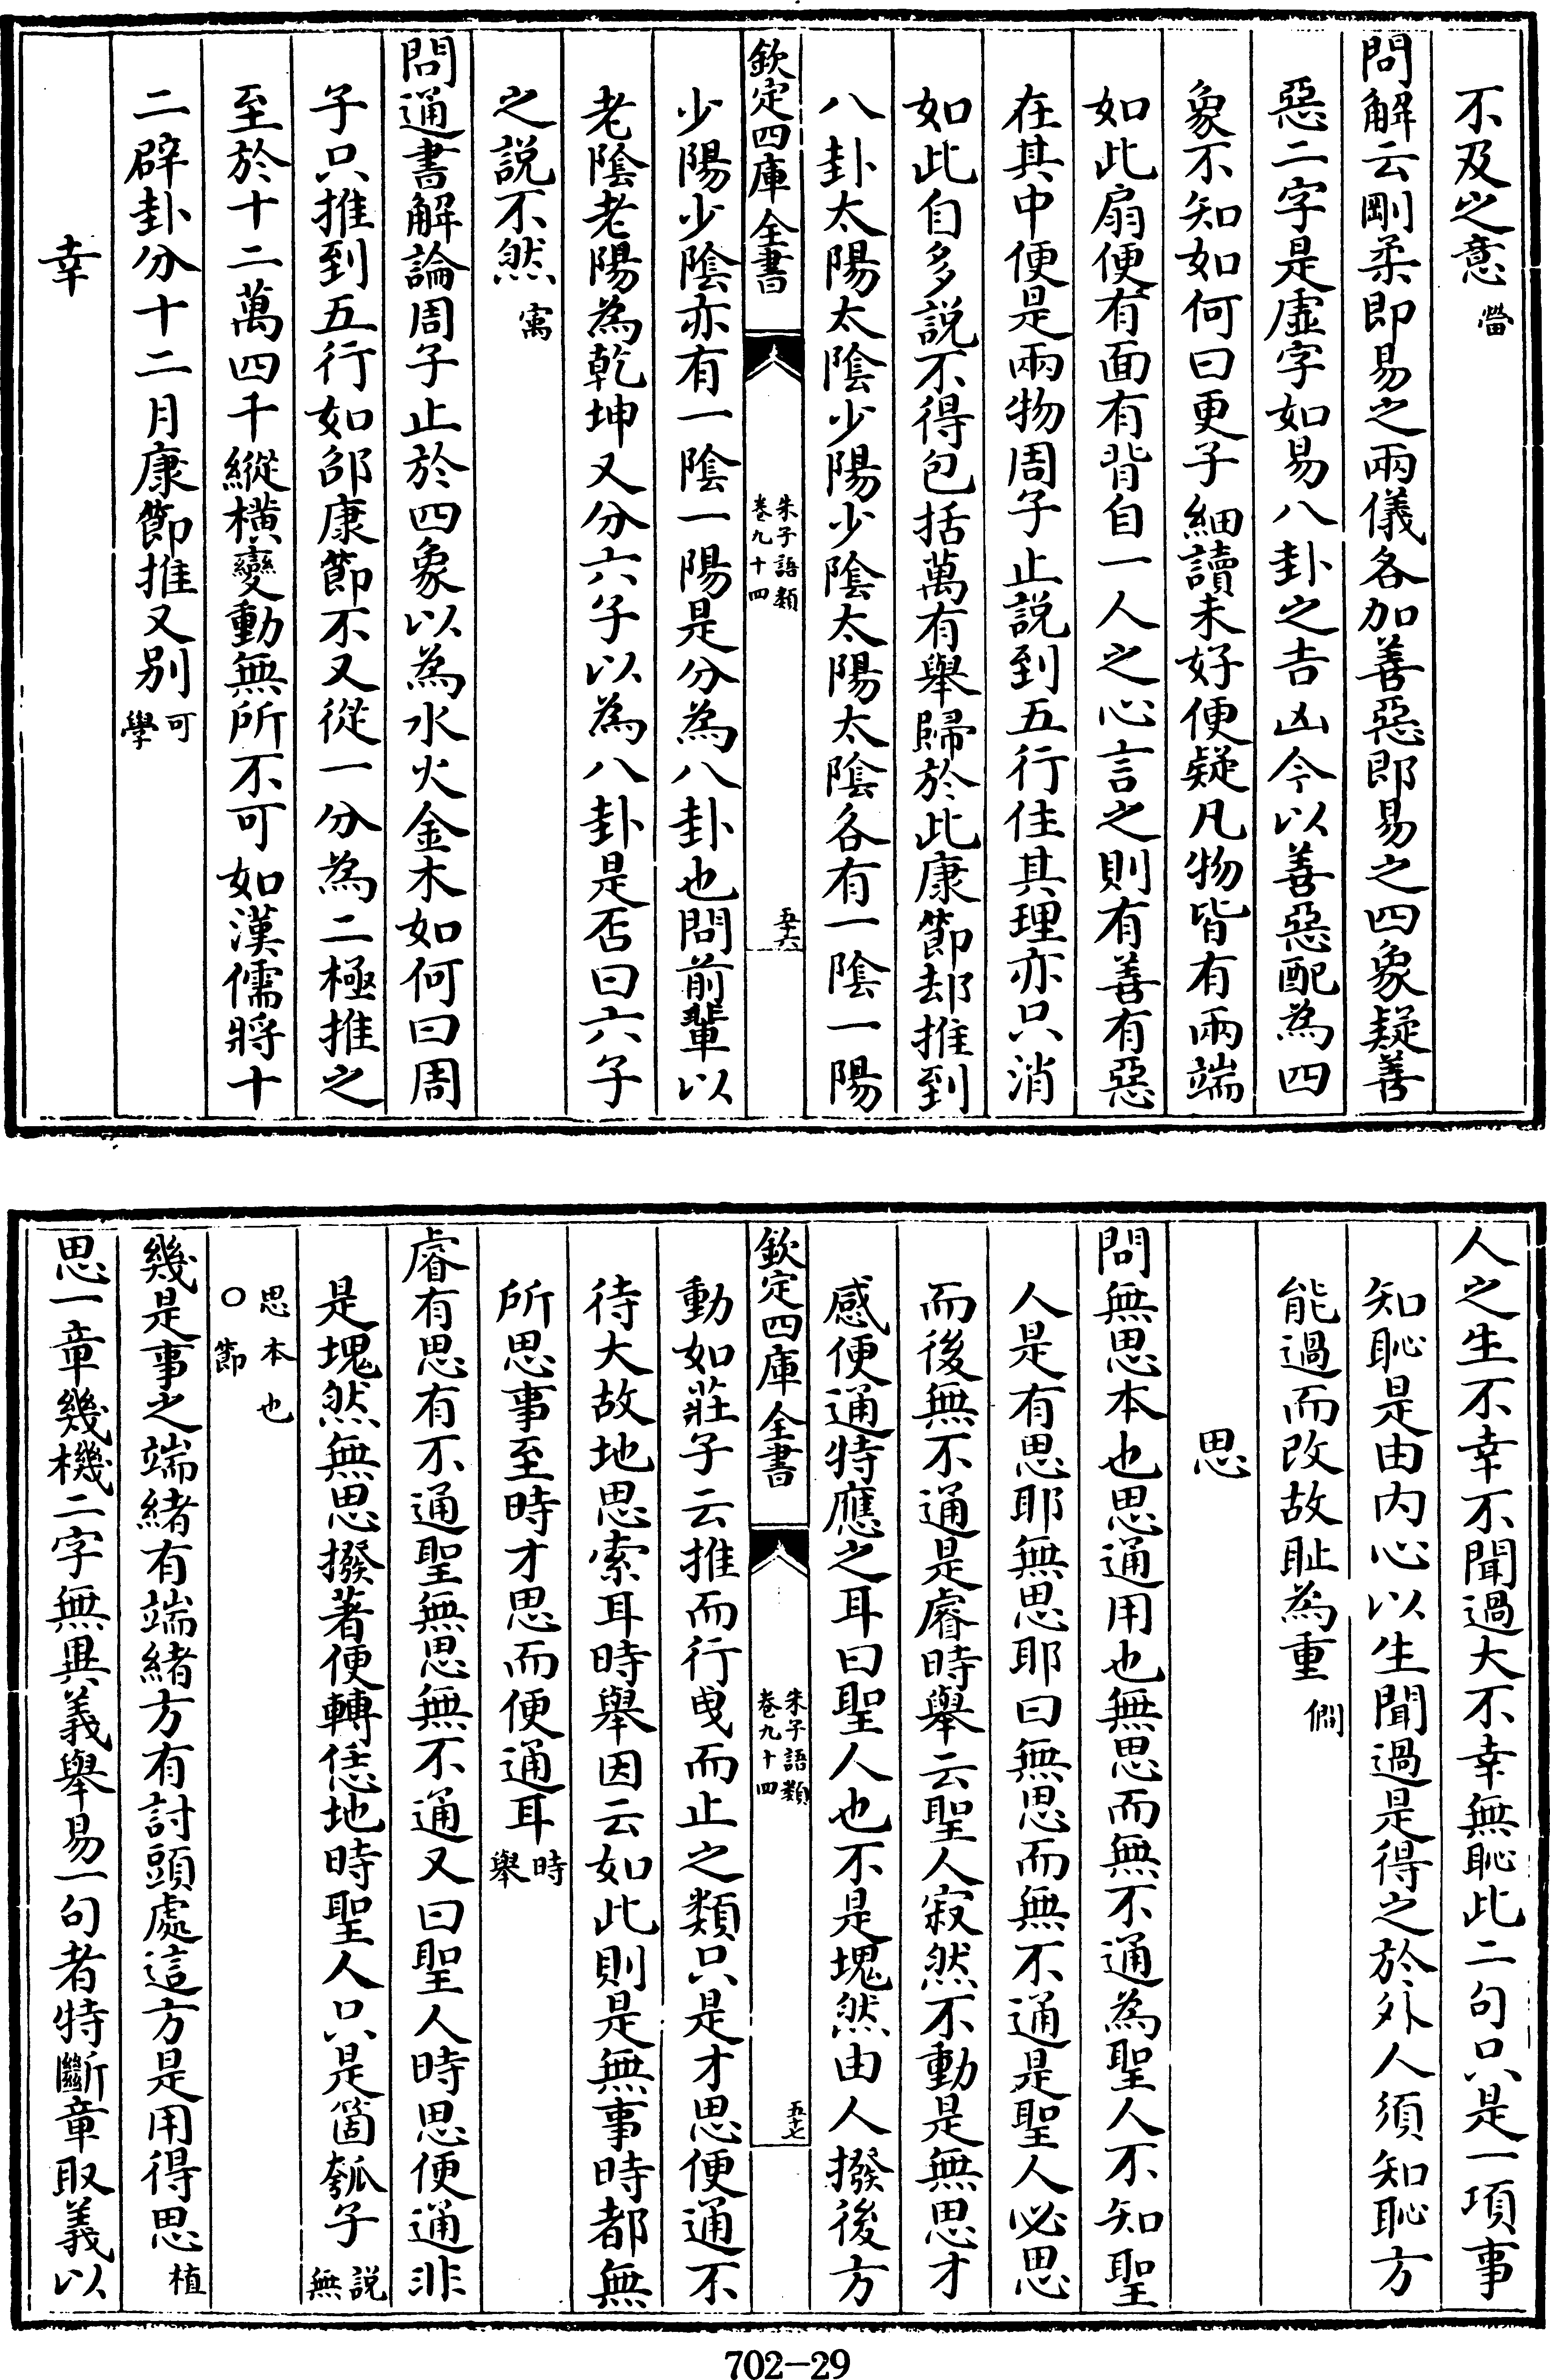 不及之意㽦
問解云剛柔即易之兩儀各加善惡即易之四象疑善
惡二字是虛字如易八卦之吉凶今以善惡配為四
象不知如何曰更子細讀未好便疑凡物皆有兩端
如此扇便有面有背自一人之心言之則有善有惡
在其中便是兩物周子止説到五行住其理亦只消
如此自多説不得包括萬有舉歸於此康節却推到
八卦太陽太陰少陽少陰太陽太陰各有一陰一陽
欽定四庫全書 朱子語類卷九十四 五十六
少陽少陰亦有一陰一陽是分為八卦也問前輩以
老陰老陽為乾坤又分六子以為八卦是否曰六子
之説不然㝢
問通書解論周子止於四象以為水火金木如何曰周
子只推到五行如邵康節不又從一分為二極推之
至於十二萬四千縱橫變動無所不可如漢儒將十
二辟卦分十二月康節推又别可學
幸
人之生不幸不聞過大不幸無恥此二句只是一項事
知恥是由内心以生聞過是得之於外人須知恥方
能過而改故恥為重僩
思
問無思本也思通用也無思而無不通為聖人不知聖
人是有思耶無思耶曰無思而無不通是聖人必思
而後無不通是睿時舉云聖人寂然不動是無思才
感便通特應之耳曰聖人也不是塊然由人撥後方
欽定四庫全書 朱子語類卷九十四 五十七
動如莊子云推而行曳而止之類只是才思便通不
待大故地思索耳時舉因云如此則是無事時都無
所思事至時才思而便通耳時舉
睿有思有不通聖無思無不通又曰聖人時思便通非
是塊然無思撥著便轉恁地時聖人只是箇瓠子説無
思本也○節
幾是事之端緒有端緒方有討頭處這方是用得思植
思一章幾機二字無異義舉易一句者特斷章取義以
702-29